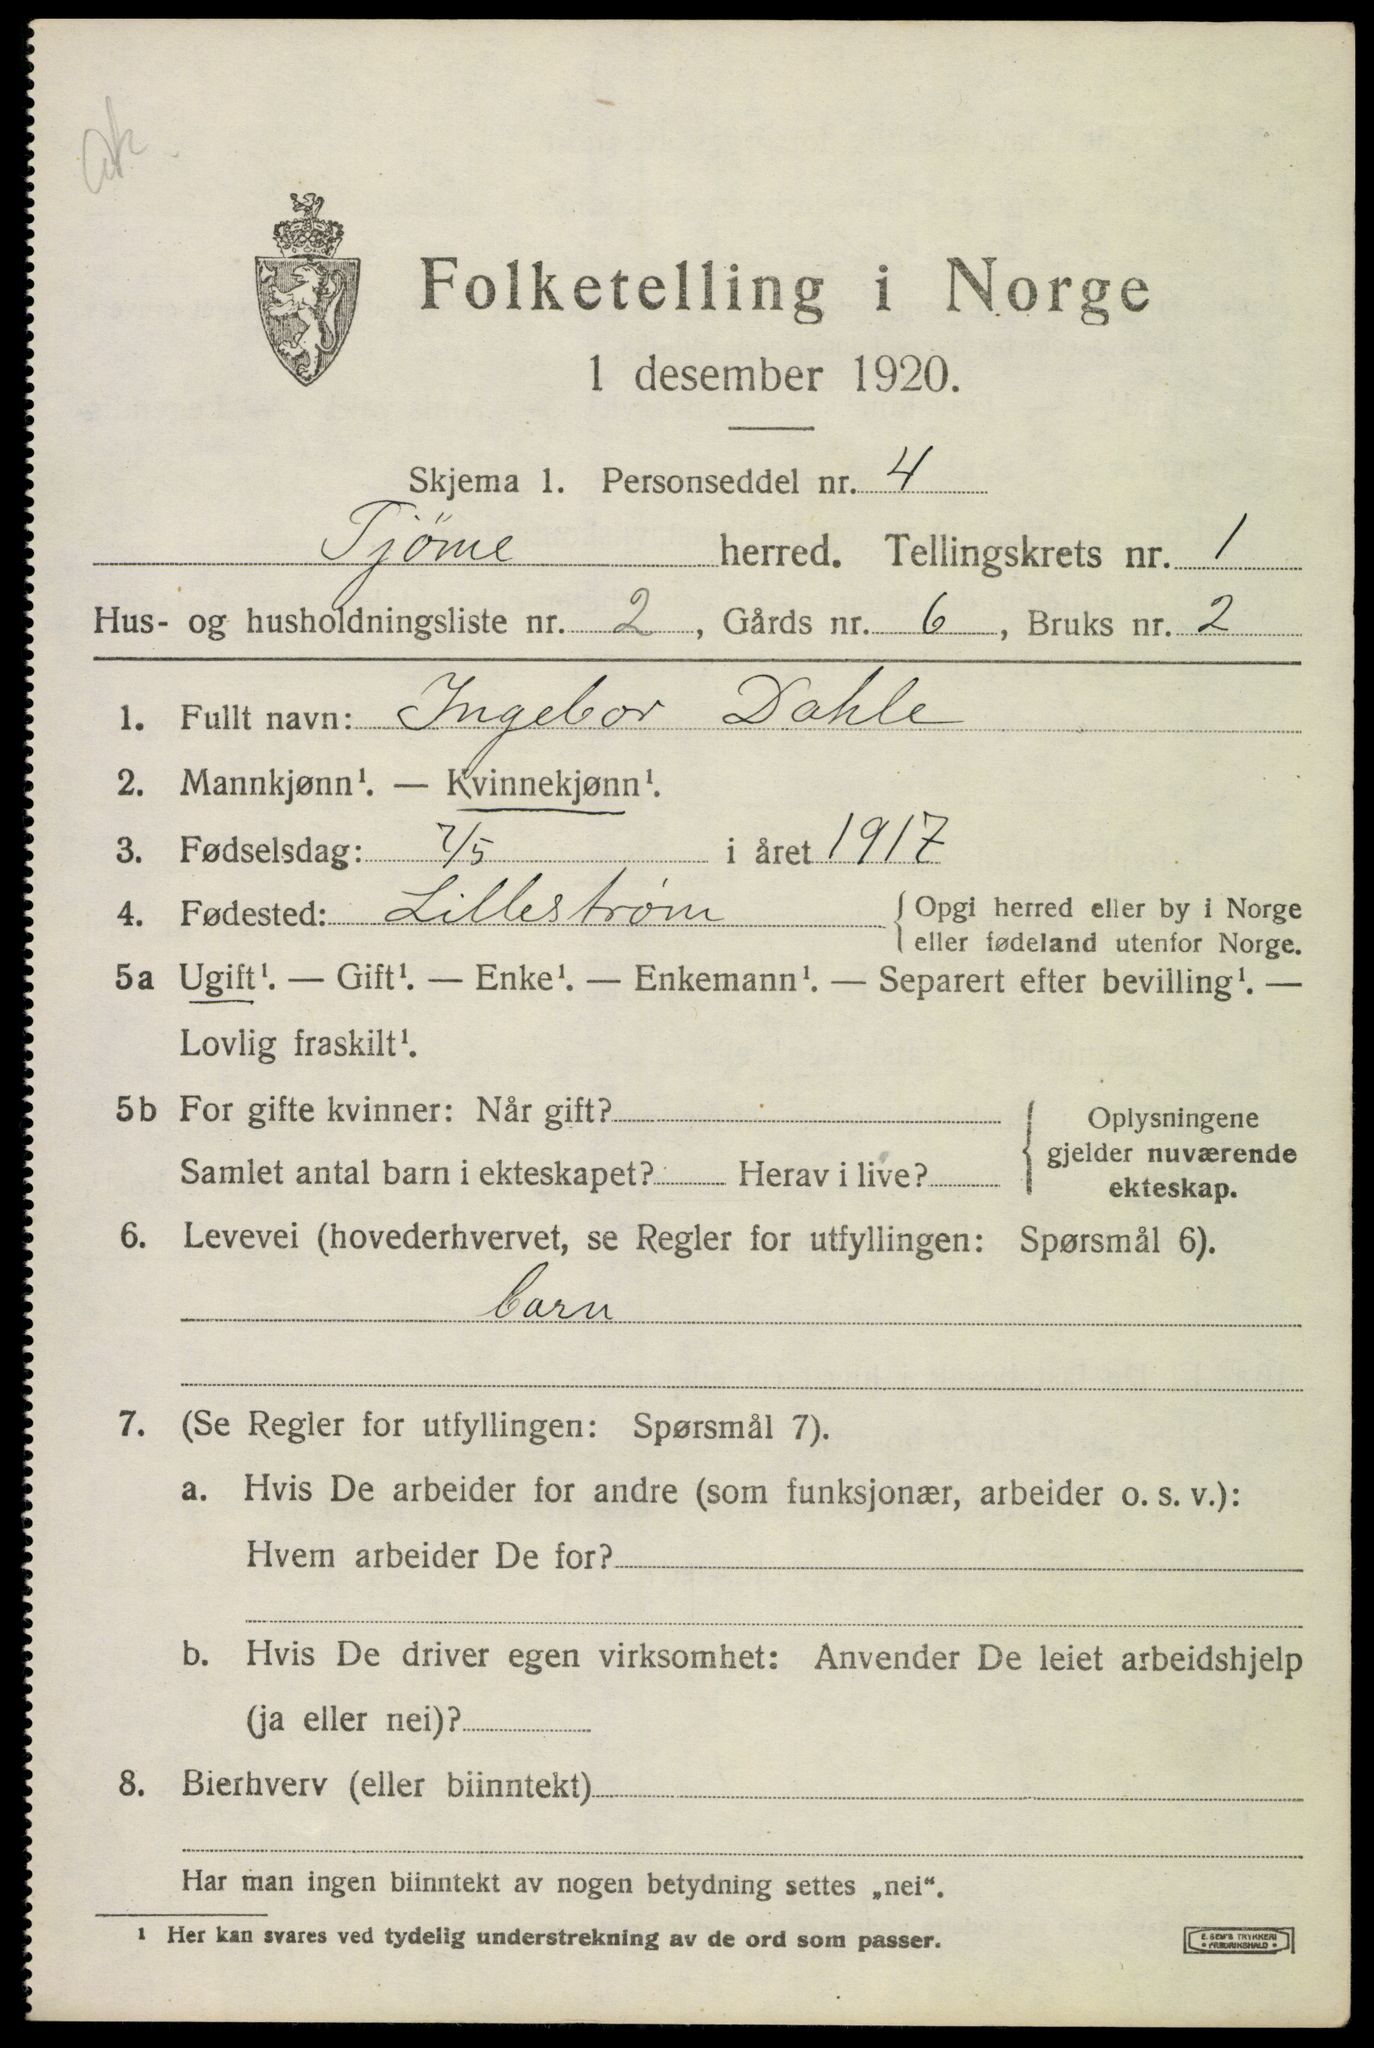 ok
Folketelling i Norge
1 desember 1920.
Skjema 1. Personseddel nr. 4
Tjöme herred. Tellingskrets nr. 1
Hus- og husholdningsliste nr. 2, Gårds nr. 6, Bruks nr. 2
1. Fullt navn: Ingebor Dahle
2. Mannkjønn¹. — Kvinnekjønn¹.
3. Fødselsdag: 7/5 i året 1917
4. Fødested: Lillestrøm { Opgi herred eller by i Norge
eller fødeland utenfor Norge.
5a Ugift¹. — Gift¹. — Enke¹. — Enkemann¹. — Separert efter bevilling¹. —
Lovlig fraskilt¹.
5b For gifte kvinner: Når gift?
Samlet antal barn i ekteskapet? Herav i live?
Oplysningene
gjelder nuværende
ekteskap.
6. Levevei (hovederhvervet, se Regler for utfyllingen: Spørsmål 6).
barn
7. (Se Regler for utfyllingen: Spørsmål 7).
a. Hvis De arbeider for andre (som funksjonær, arbeider o. s. v.):
Hvem arbeider De for?
b. Hvis De driver egen virksomhet: Anvender De leiet arbeidshjelp
(ja eller nei)?
8. Bierhverv (eller biinntekt)
Har man ingen biinntekt av nogen betydning settes „nei“.
¹ Her kan svares ved tydelig understrekning av de ord som passer.
E. SEM'S TRYKKERI
• FREDRIKSHALD •